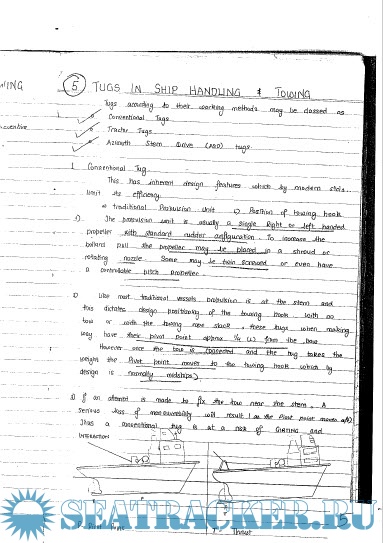 WING
5 TUGS IN SHIP HANDLING & TOWING
Tugs according to their working methods may be classed as
Conventional Tugs
Tractor Tugs
Azimuth Stern Drive (ASD) tugs
1. Conventional Tug
This has inherent design features which by modern stds.
limit its efficiency.
Traditional Propulsion unit Position of towing hook
The propulsion unit is usually a single Right or left handed
propeller with standard rudder configuration. To increase the
bollard pull the propeller may be placed in a shroud or
rotating nozzle. Some may be twin screwed or even have
a controllable pitch propeller
Like most traditional vessels propulsion is at the stern and
this dictates design positioning of the towing hook. With no
tow or with the towing rope slack, these tugs when making
way have their pivot point approx 1/4 from the bow.
However once the tow is connected and the tug takes the
weight the Pivot point moves to the towing hook which by
design is normally midships.
If an attempt is made to fix the tow near the stern, A
serious loss of manoeuvrability will result
Thus a conventional tug is at a risk of GIRTING and
INTERACTION
P- Pivot Point
T - Thrust
5
SEATRACKER.RU